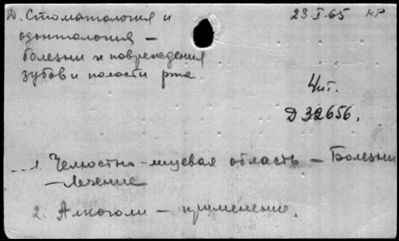 Д. Стоматология и
23.I.65 кр
одонтология –
болезни и повреждения
зубов и полости рта
Чит.
Д 32656.
1. Челюстно-лицевая область – Болезни
– лечение
2. Алкоголи – применение.